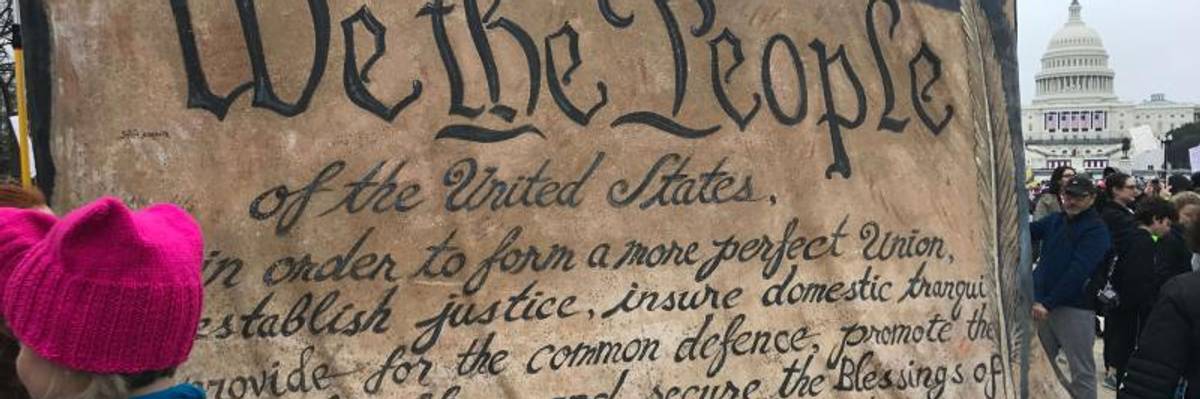 We the People
of the United States,
in order to form a more perfect Union,
establish justice, insure domestic tranqui
provide for the common defence, promote the
and secure the Blessings of